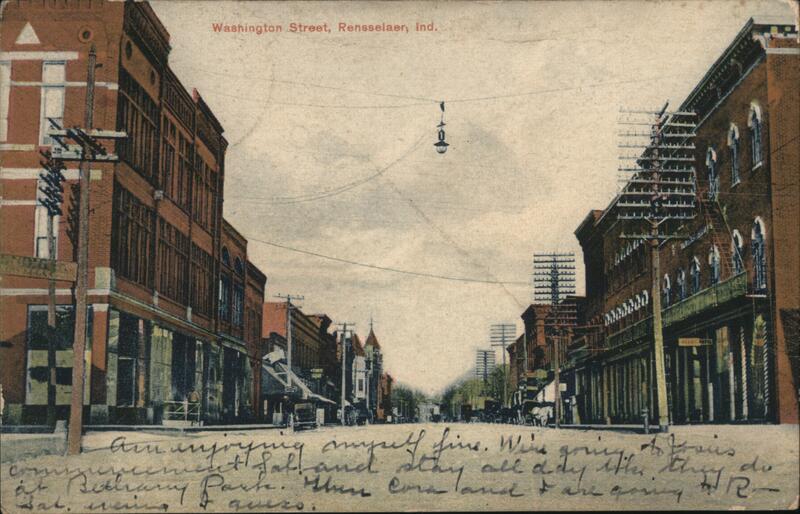 Washington Street, Rensselaer, Ind.
Am enjoying myself fine. We're going to Josies
commencement Sat. and stay all day like they do
at Bethany Park. Then Cora and I are going to R-
Sat. evening I guess.